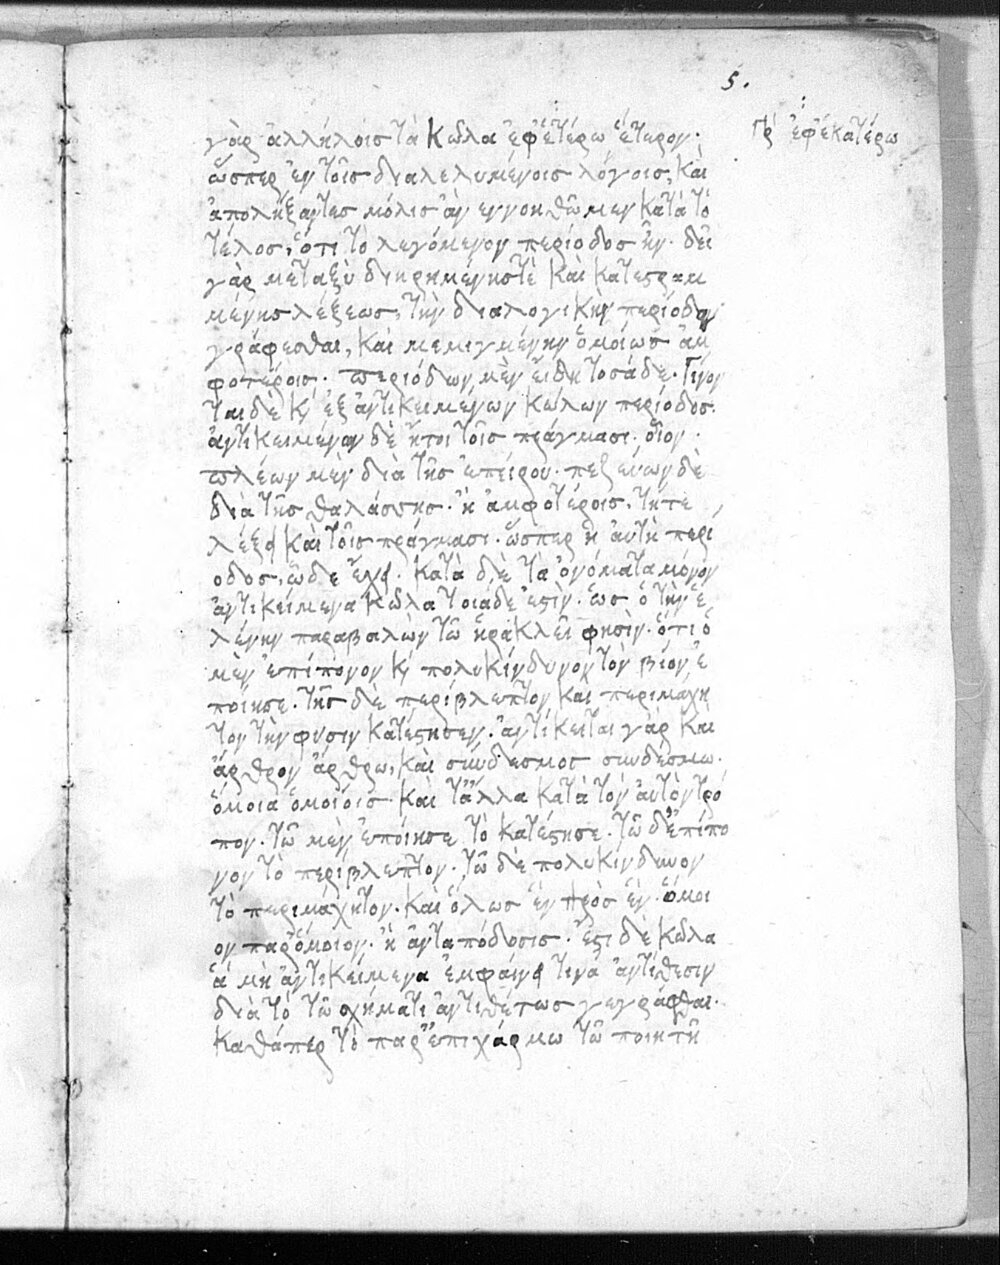 5.
γὰρ ἀλλήλοις τὰ κῶλα ἐφ' ἑτέρω ἕτερον·
Γρ ἐφ' ἑκατέρω
ὥσπερ ἐν τοῖς διαλελυμένοις λόγοις, καὶ
ἀπολήξαντες μόλις ἂν ἐννοηθῶμεν κατὰ τὸ
τέλος, ὅτι τὸ λεγόμενον περίοδος ἦν· δεῖ
γὰρ μεταξὺ διηρημένης τὲ καὶ κατεστραμ
μένης λέξεως, τὴν διαλογικὴν περίοδον
γράφεσθαι, καὶ μεμιγμένην ὁμοίως ἀμ
φοτέροις· περιόδων μὲν εἴδη τοσάδε. Γίνον
ται δὲ κ ἐξ ἀντικειμένων κώλων περίοδος·
ἀντικειμένων δὲ ἤτοι τοῖς πράγμασι· οἷον·
πλέων μὲν διὰ τῆς ἠπείρου· πεζεύων δὲ
διὰ τῆς θαλάσσης· ἢ ἀμφοτέροις, τῆ τε
λέξει καὶ τοῖς πράγμασι· ὥσπερ ἡ αὐτὴ περί
οδος, ὧδε ἔχει. κατὰ δὲ τὰ ὀνόματα μόνον
ἀντικείμενα κῶλα τοιάδε ἐστὶν· ὡς ὁ τὴν ἑ
λένην παραβαλὼν τῶ ἡρακλεῖ φησὶν· ὅτι ὁ
μὲν ἐπίπονον κ πολυκίνδυνον τὸν βίον ἐ
ποίησε· τῆς δὲ περίβλεπτον καὶ περιμάχη
τον τὴν φύσιν κατέστησεν. ἀντίκειται γὰρ καὶ
ἄρθρον ἄρθρω, καὶ σύνδεσμος συνδέσμω·
ὅμοια ὁμοίοις· καὶ τἄλλα κατὰ τὸν αὐτὸν τρό
πον· τῶ μὲν ἐποίησε τὸ κατέστησε· τῶ δ' ἐπίπο
νον τὸ περίβλεπτον· τῶ δὲ πολυκίνδυνον
τὸ περιμάχητον· καὶ ὅλως ἓν πρὸς ἓν· ὅμοι
ον παρ' ὅμοιον· ἡ ἀνταπόδοσις· ἔστι δὲ κῶλα
ἃ μὴ ἀντικείμενα ἐμφαίνει τινὰ ἀντίθεσιν
διὰ τὸ τῶ σχήματι ἀντιθέτως γεγράφθαι·
καθάπερ τὸ παρ' ἐπιχάρμω τῶ ποιητῆ